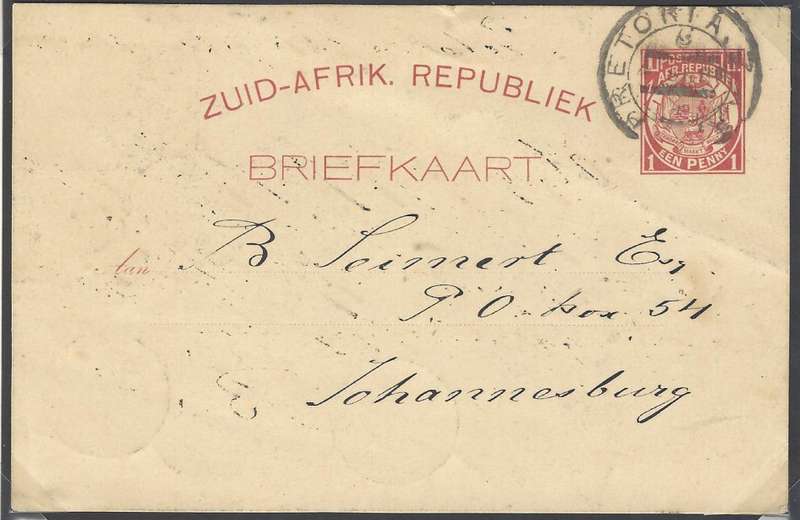 ZUID-AFRIK. REPUBLIEK
BRIEFKAART
PRETORIA
POSTZEGEL
AFR. REPUBL
EEN PENNY
1 1
Aan B Seimert Esq
P. O. box 54
Johannesburg